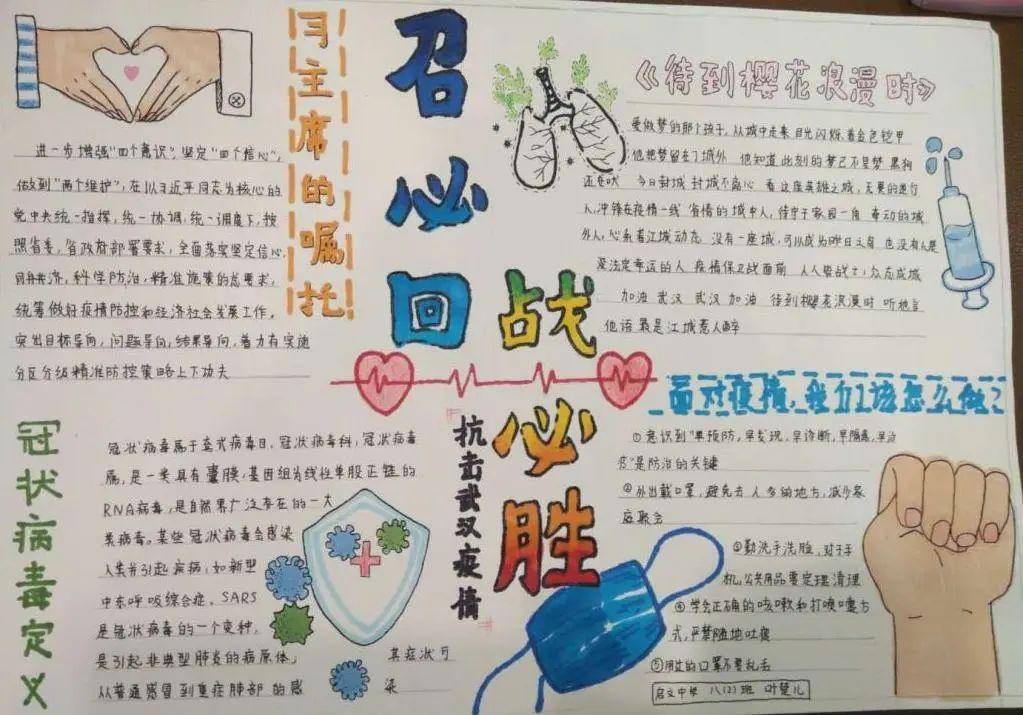 召必回
战必胜
抗击武汉疫情
习主席的嘱托
进一步增强“四个意识”，坚定“四个信心”，
做到“两个维护”，在以习近平同志为核心的
党中央统一指挥，统一协调，统一调度下，按
照省委，省政府部署要求，全面落实坚定信心，
同舟共济，科学防治，精准施策的总要求，
统筹做好疫情防控和经济社会发展工作，
突出目标导向，问题导向，结果导向，着力有实施
分区分级精准防控策略上下功夫
《待到樱花浪漫时》
爱做梦的那个孩子，从城中走来 目光闪烁、着金色铠甲
他把梦留在了城外 他知道 此刻的梦已不是梦 黑狗
还在吠 今日封城 封城不离心 看这座英雄之城，无畏的逆行
人，冲锋在疫情一线 省情的城中人，待守于家园一角 牵动的城
外人，心系着江城动态 没有一座城，可以成为昨日之岛 也没有人是
深法定幸运的人 疫情保卫战面前 人人皆战士，众志成城
加油 武汉 武汉 加油 待到樱花浪漫时 听他言
他语 最是江城惹人醉
冠状病毒定义
冠状病毒属于套式病毒目、冠状病毒科，冠状病毒
属，是一类具有囊膜，基因组为线性单股正链的
RNA病毒，是自然界广泛存在的一大
类病毒。某些冠状病毒会感染
人类并引起疾病，如新型
中东呼吸综合症、SARS
是冠状病毒的一个变种，
是引起非典型肺炎的病原体， 其症状可
从普通感冒到重症肺部的感 染
面对疫情，我们该怎么做？
①意识到“早预防，早发现，早诊断，早隔离，早治
疗”是防治的关键
②外出戴口罩，避免去人多的地方，减少家
庭聚会
③勤洗手洗脸，对于手
机，公共用品要定理清理
④学会正确的咳嗽和打喷嚏方
式，严禁随地吐痰
⑤用过的口罩不要乱丢
启文中学 八(2)班 叶楚儿